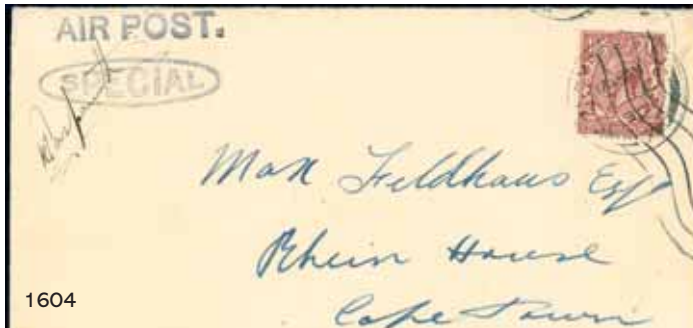 AIR POST.
SPECIAL
Max Feldhaus Esq
Rhein House
Cape Town
1604